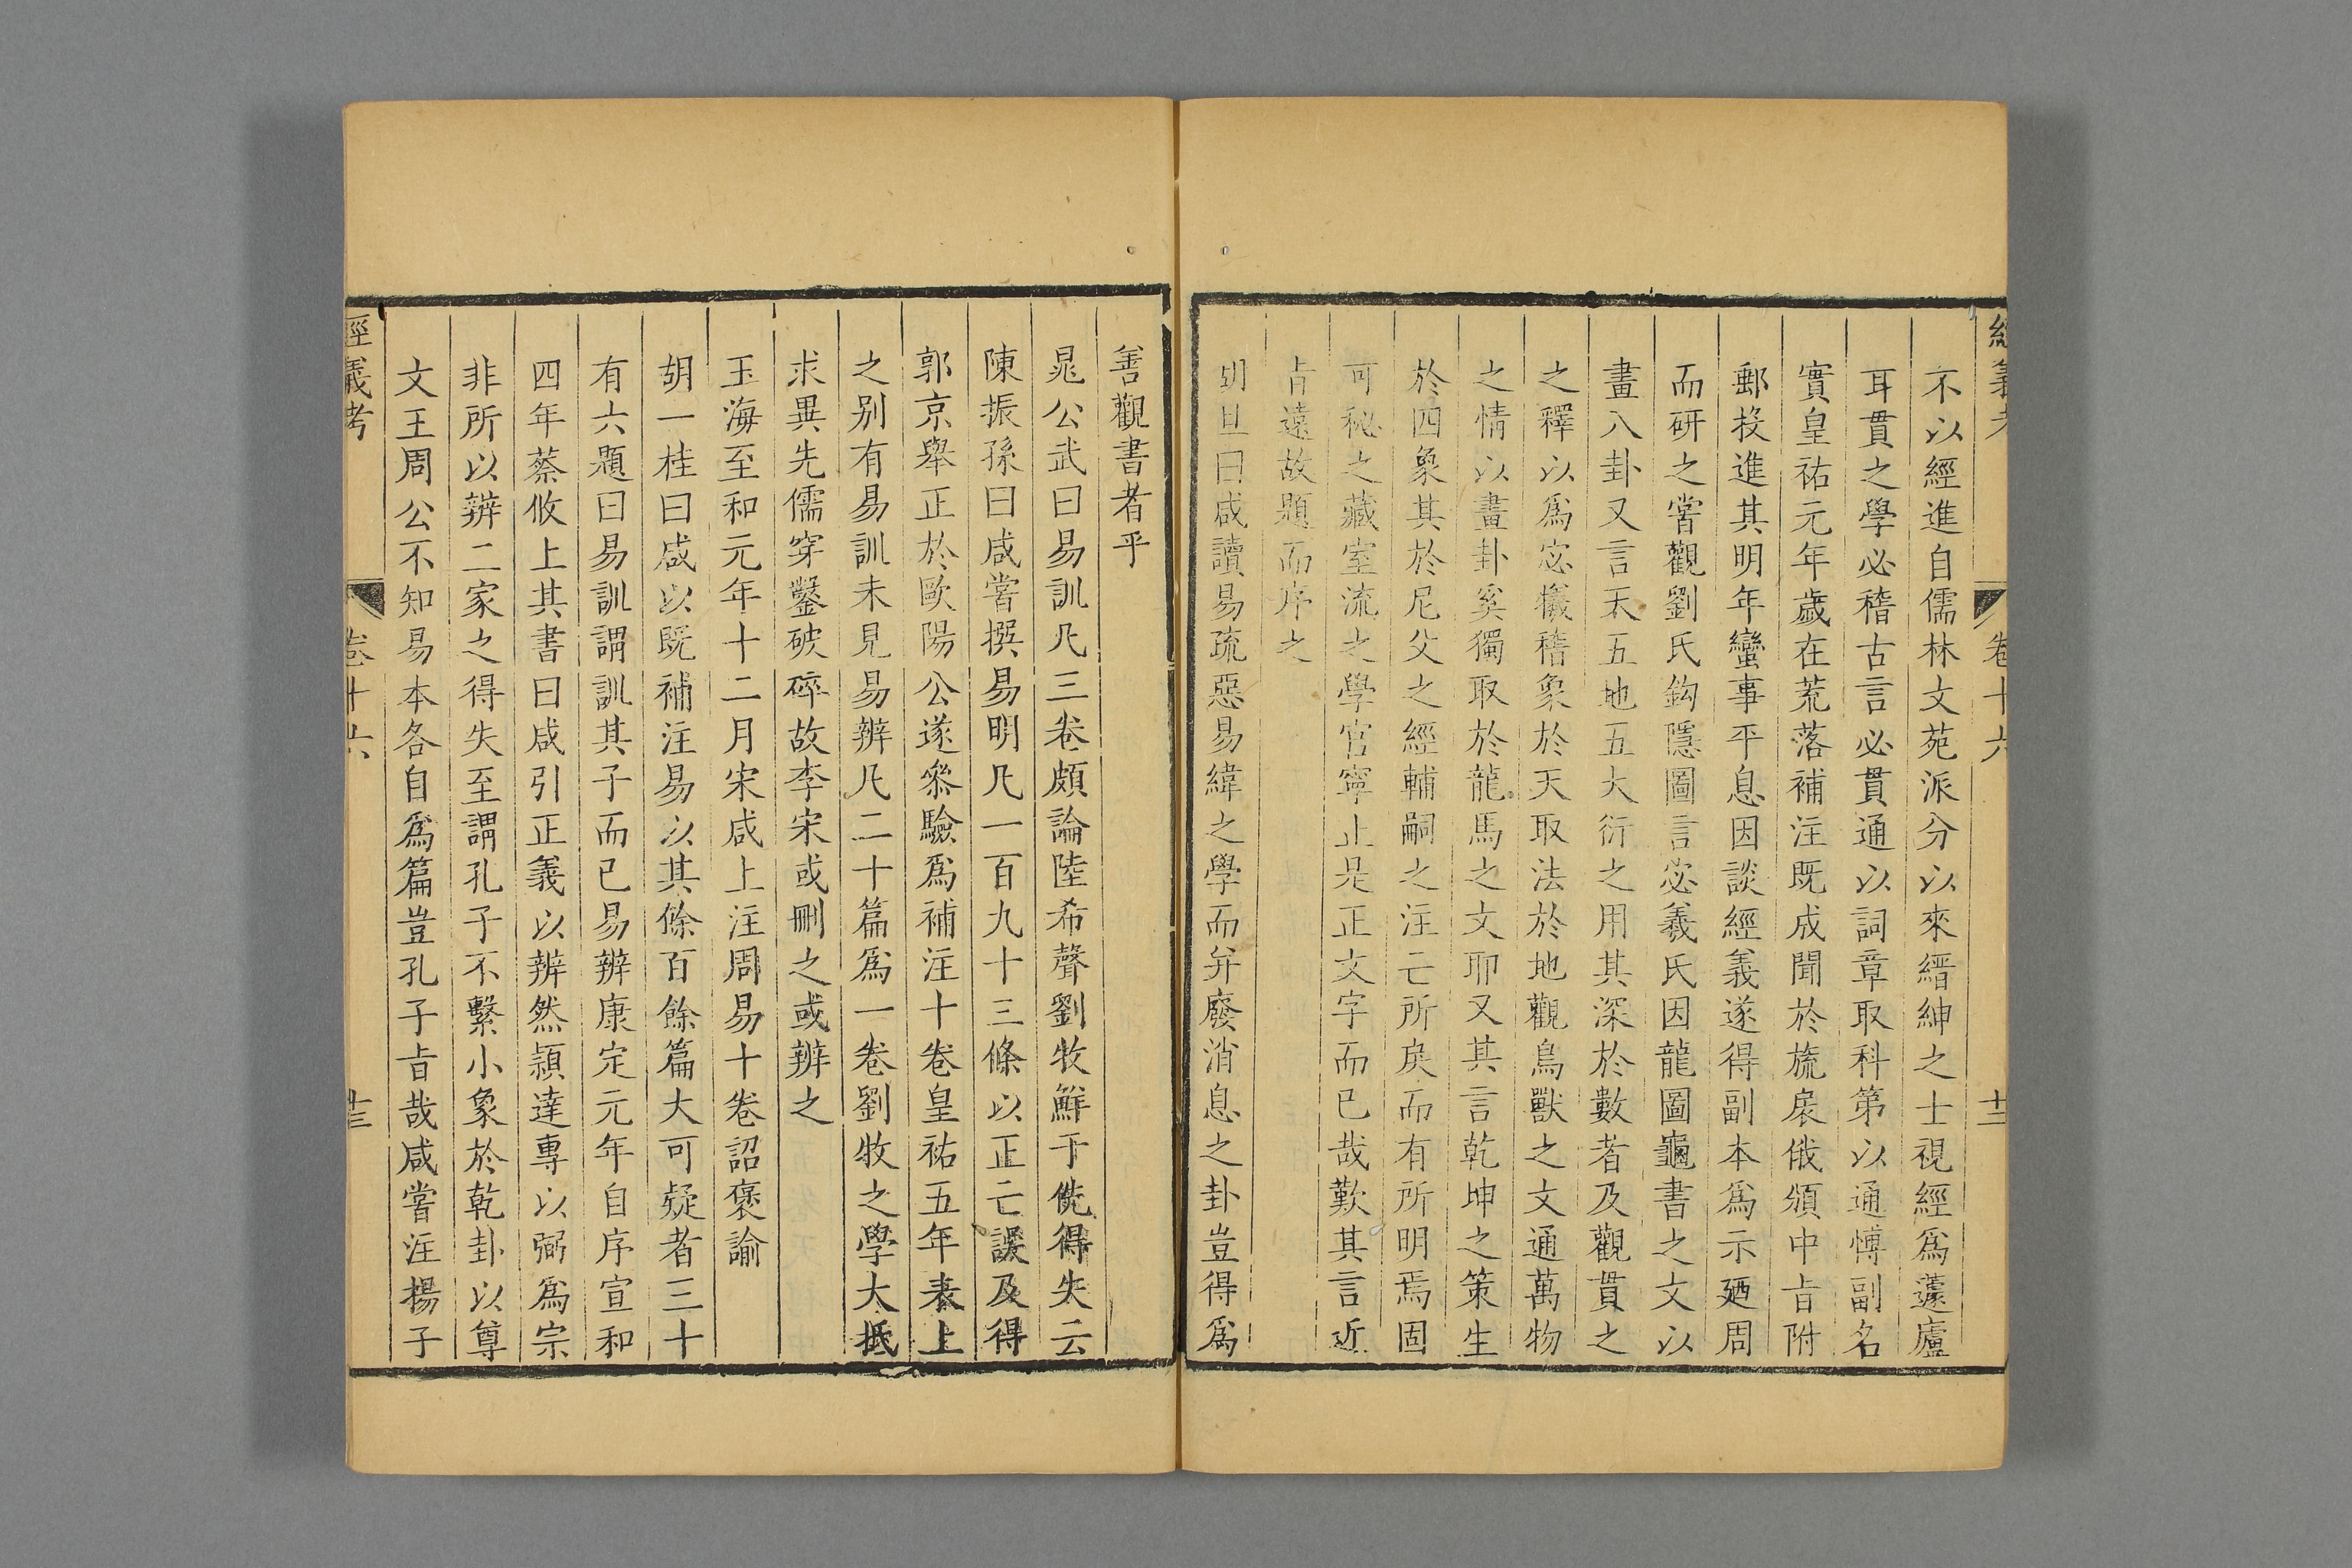 經義考 卷十六 十二
不以經進自儒林文苑派分以來縉紳之士視經爲蘧廬
耳貫之學必稽古言必貫通以詞章取科第以通愽副名
實皇祐元年歲在荒落補注既成聞於旒扆俄頒中㫖附
郵投進其明年蠻事平息因談經義遂得副本爲示廼周
而研之嘗觀劉氏鈎隱圖言宓羲氏因龍圖龜書之文以
畫八卦又言天五地五大衍之用其深於數者及觀貫之
之釋以爲宓犧稽象於天取法於地觀鳥獸之文通萬物
之情以畫卦奚獨取於龍馬之文耶又其言乾坤之策生
於四象其於尼父之經輔嗣之注亡所戾而有所明焉固
可秘之藏室流之學官寧止是正文字而已哉歎其言近
㫖遠故題而序之
胡旦曰咸讀易疏惡易緯之學而并廢消息之卦豈得爲
善觀書者乎
晁公武曰易訓凡三卷頗論陸希聲劉牧鮮于侁得失云
陳振孫曰咸嘗撰易明凡一百九十三條以正亡誤及得
郭京舉正於歐陽公遂叅驗爲補注十卷皇祐五年表上
之别有易訓未見易辨凡二十篇爲一卷劉牧之學大抵
求異先儒穿鑿破碎故李宋或刪之或辨之
玉海至和元年十二月宋咸上注周易十卷詔褒諭
胡一桂曰咸以既補注易以其餘百餘篇大可疑者三十
有六題曰易訓謂訓其子而已易辨康定元年自序宣和
四年蔡攸上其書曰咸引正義以辨然頴達專以弼爲宗
非所以辨二家之得失至謂孔子不繫小象於乾卦以尊
文王周公不知易本各自爲篇豈孔子㫖哉咸嘗注揚子
經義考 卷十六 十三